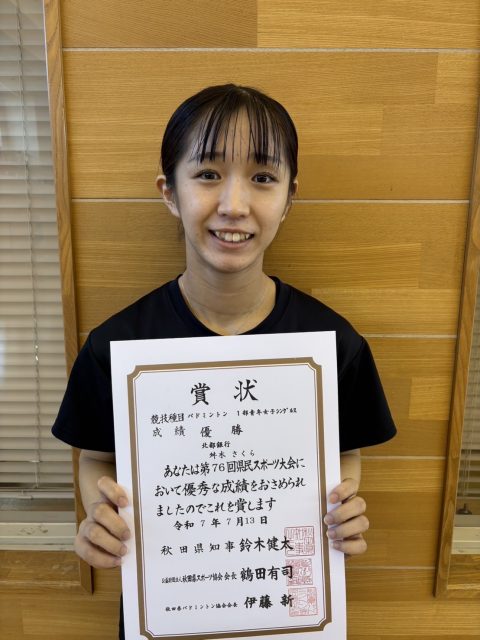 賞状
競技種目 バドミントン 1部青年女子シングルス
成績 優勝
北都銀行
舛木 さくら
あなたは第76回県民スポーツ大会に
おいて優秀な成績をおさめられ
ましたのでこれを賞します
令和7年7月13日
秋田県知事 鈴木健太
公益財団法人秋田県スポーツ協会 会長 鶴田有司
秋田県バドミントン協会会長 伊藤 新